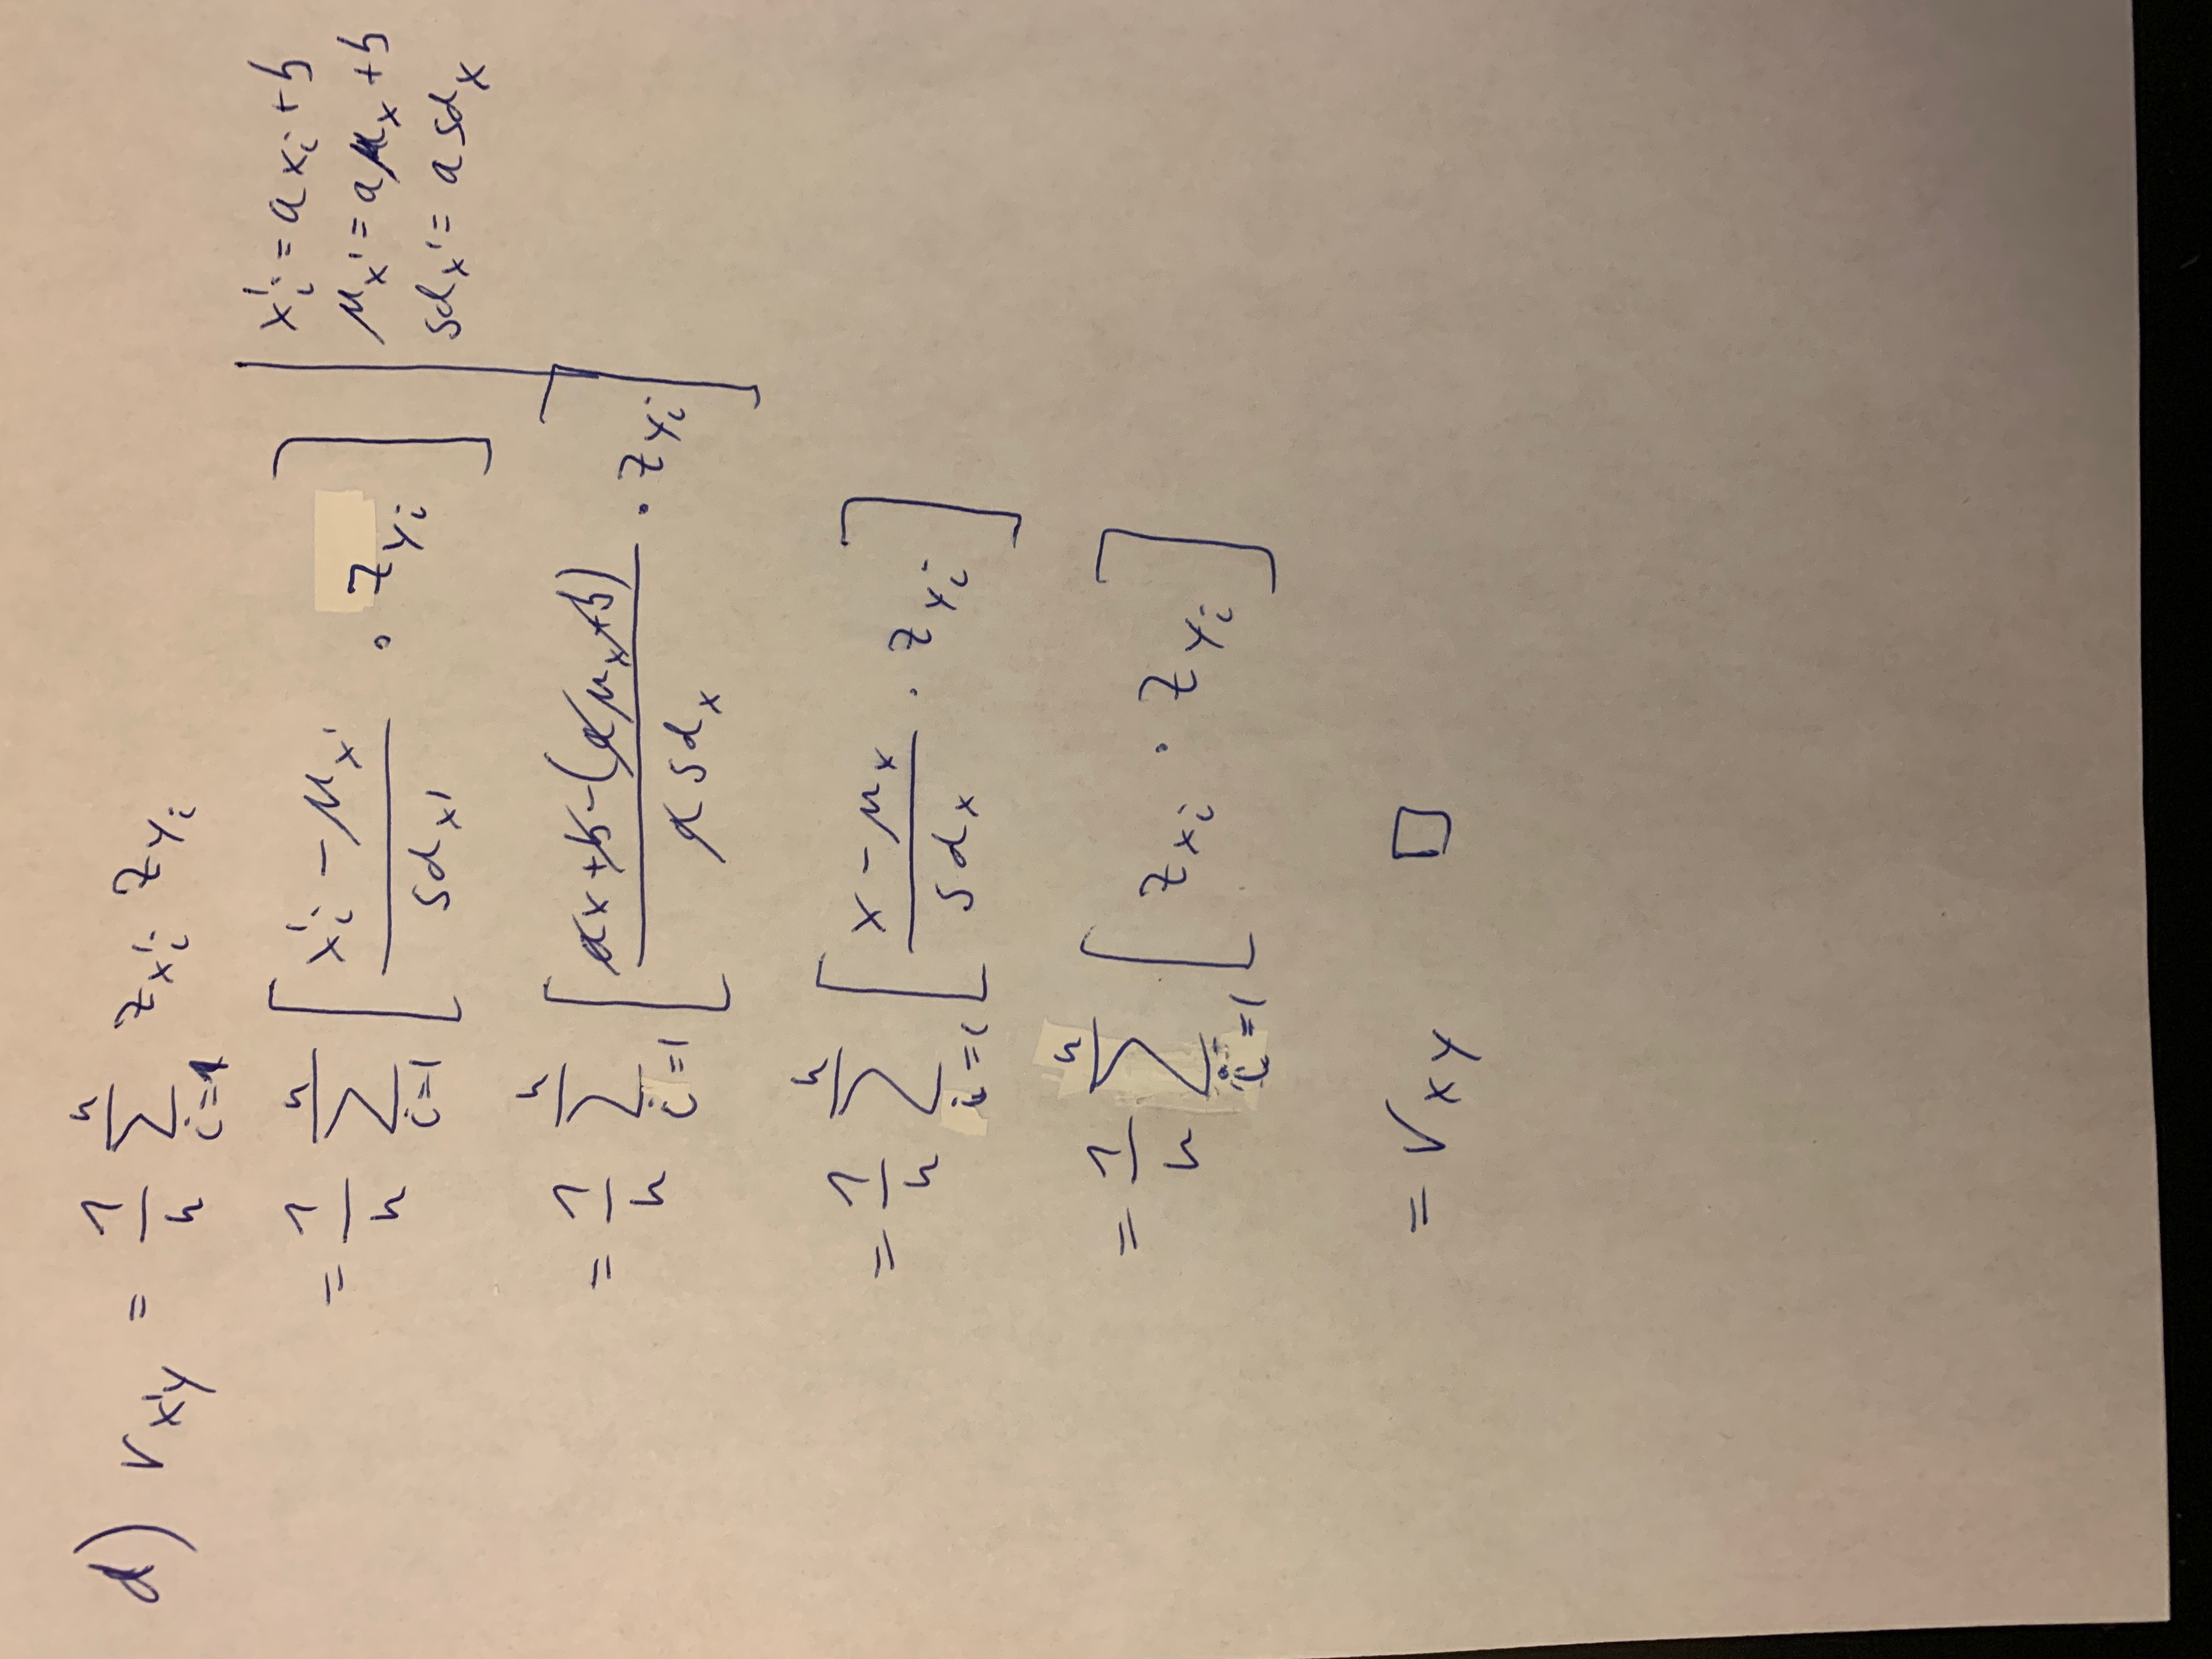 d) r_{x'y} = 1/n ∑_{i=1}^{n} z_{x'_i} z_{y_i}
= 1/n ∑_{i=1}^{n} [ (x'_i - μ_{x'}) / sd_{x'} · z_{y_i} ]
x'_i = a x_i + b
μ_{x'} = a μ_x + b
sd_{x'} = a sd_x
= 1/n ∑_{i=1}^{n} [ (ax + b - (a μ_x + b)) / (a sd_x) · z_{y_i} ]
= 1/n ∑_{i=1}^{n} [ (x - μ_x) / sd_x · z_{y_i} ]
= 1/n ∑_{i=1}^{n} [ z_{x_i} · z_{y_i} ]
= r_{xy} □